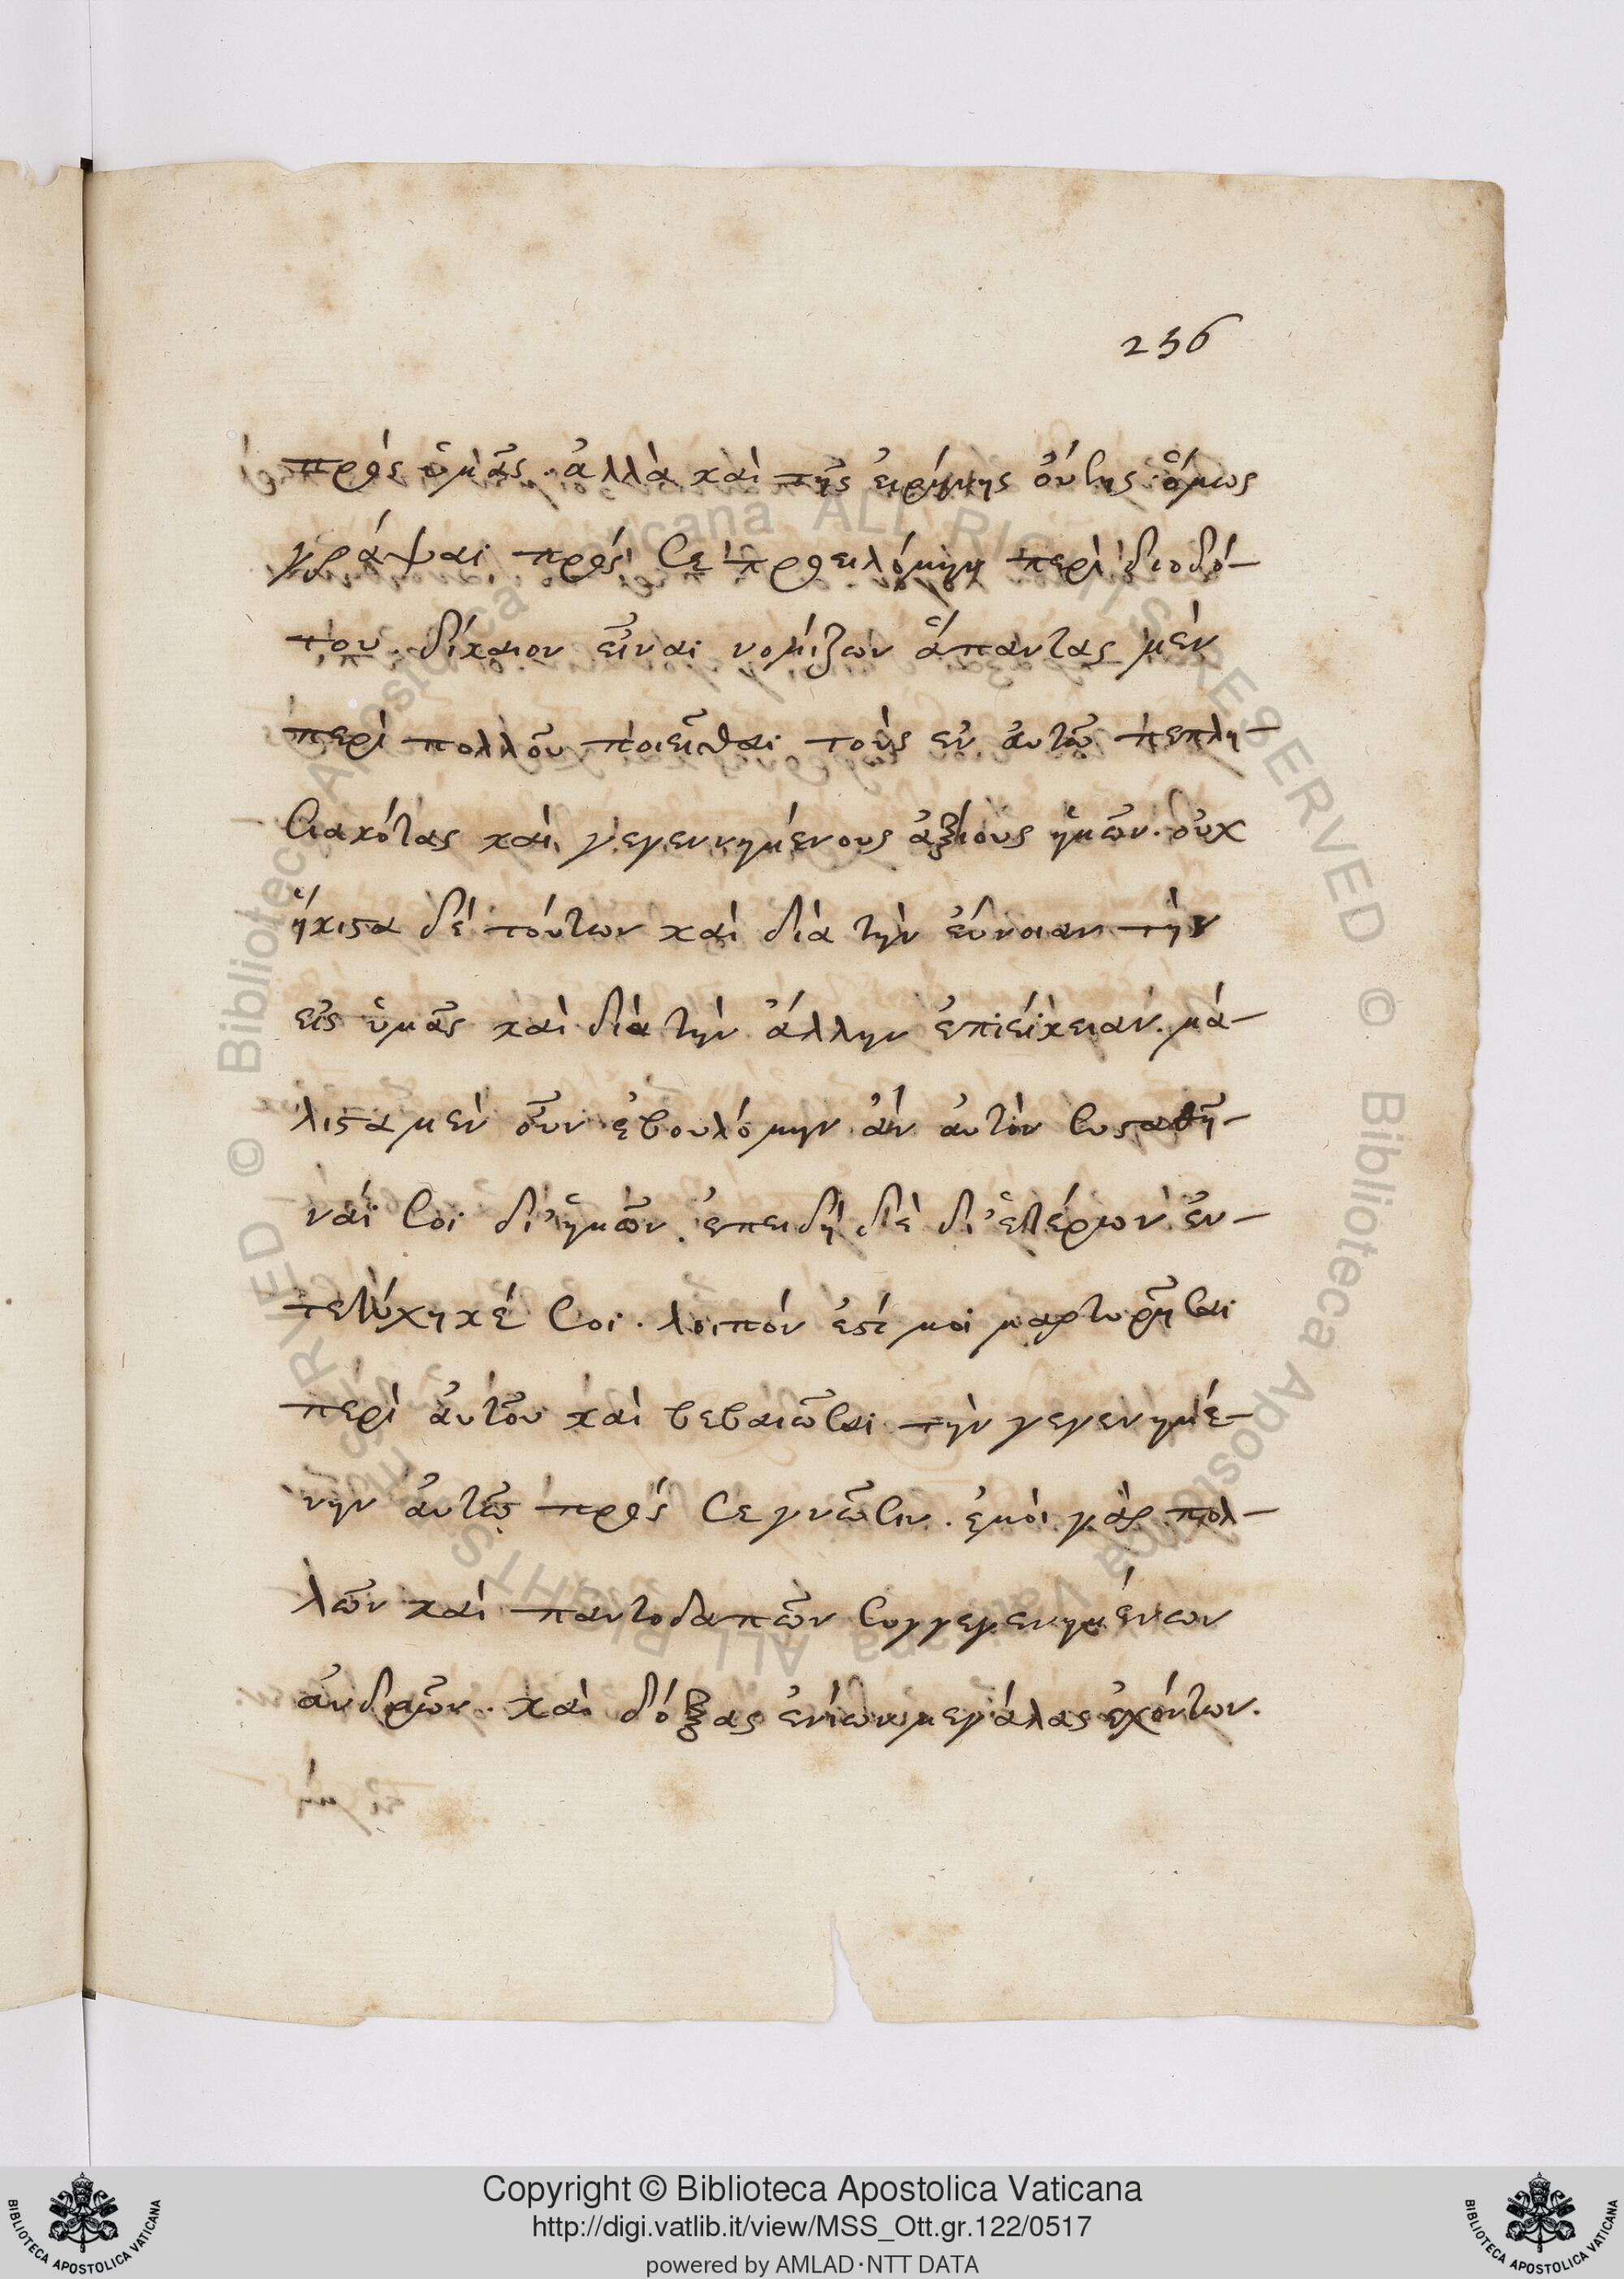 236
πρὸς ὑμᾶς. ἀλλὰ καὶ τῆς εἰρήνης οὔσης. ὅμως
γράψαι πρός σε προειλόμην περὶ διοδό-
του. δίκαιον εἶναι νομίζων ἅπαντας μὲν
περὶ πολλοῦ ποιεῖσθαι τοὺς ἐν ἀυτῶ πεπλη-
σιακότας καὶ γεγεννημένους ἀξίους ἡμῶν. οὐχ
ἥκιστα δὲ τούτων καὶ διὰ τὴν εὔνοιαν τὴν
εἰς ὑμᾶς καὶ διὰ τὴν ἄλλην ἐπιείκειαν. μά-
λιστα μὲν οὖν ἐβουλόμην ἂν ἀυτὸν συσταθῆ-
ναί σοι δι' ἡμῶν. ἐπειδὴ δὲ δι' ἑτέρων ἐν-
τετύχηκέ σοι. λοιπόν ἐστί μοι μαρτυρῆσαι
περὶ ἀυτοῦ καὶ βεβαιῶσαι τὴν γεγενημέ-
νην ἀυτῶ πρός σε γνῶσιν. ἐμοὶ γὰρ πολ-
λῶν καὶ παντοδαπῶν συγγεγενημένων
ἀνδρῶν. καὶ δόξας ἐνίων μεγάλας ἐχόντων.
Copyright © Biblioteca Apostolica Vaticana
http://digi.vatlib.it/view/MSS_Ott.gr.122/0517
powered by AMLAD·NTT DATA
BIBLIOTECA APOSTOLICA VATICANA
BIBLIOTECA APOSTOLICA VATICANA